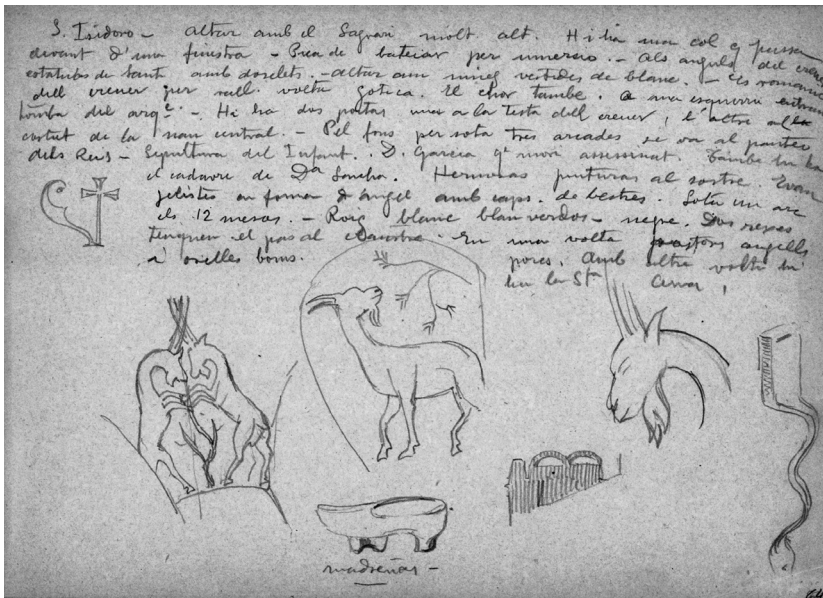 S. Isidoro – altar amb el Sagrari molt alt. Hi ha una col q
devant d'una finestra – Pica de bateiar per inmersio. – Als anguls del creuer
estatues de sants amb doselets. – altar amb nines vestides de blanc. –
dell creuer per vall. volta gotica. El chor tambe. a ma esquerra
tomba del arq.e – Hi ha dos portas una a la testa dell creuer, l'altre al
costat de la nau central. – Pel fons per sota tres arcades se va al panteo
dels Reis – Sepultura del Infant. D. Garcia q. mori assesinat. Tambe hi ha
el cadavre de Da Sancha. Hermosas pinturas al sostre. Evan
gelistes en forma d'angel amb caps de besties. Sota un arc
els 12 mesos. – Roig blanc blau verdos – negre. Dos rexes
tenquen el pas al Claustre. En una volta pastors angells
i ovelles bous. porcs. Amb altre volta hi
ha la Sta Cena,
madreñas –